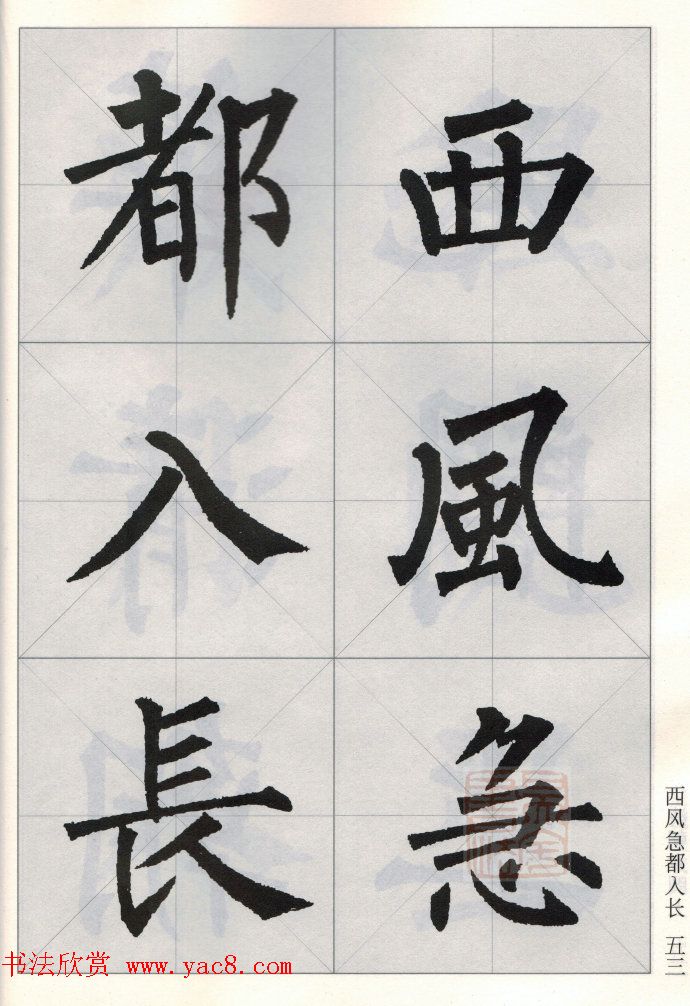 西風急
都入長
西风急都入长 五三
书法欣赏 www.yac8.com